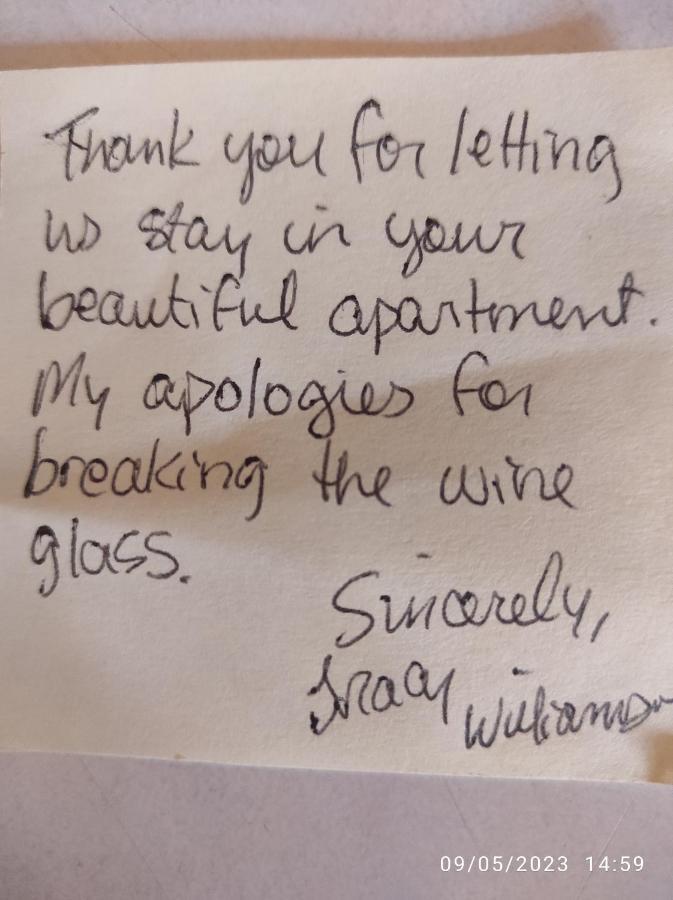 Thank you for letting
us stay in your
beautiful apartment.
My apologies for
breaking the wine
glass.
Sincerely,
Tracy Williamson
09/05/2023 14:59